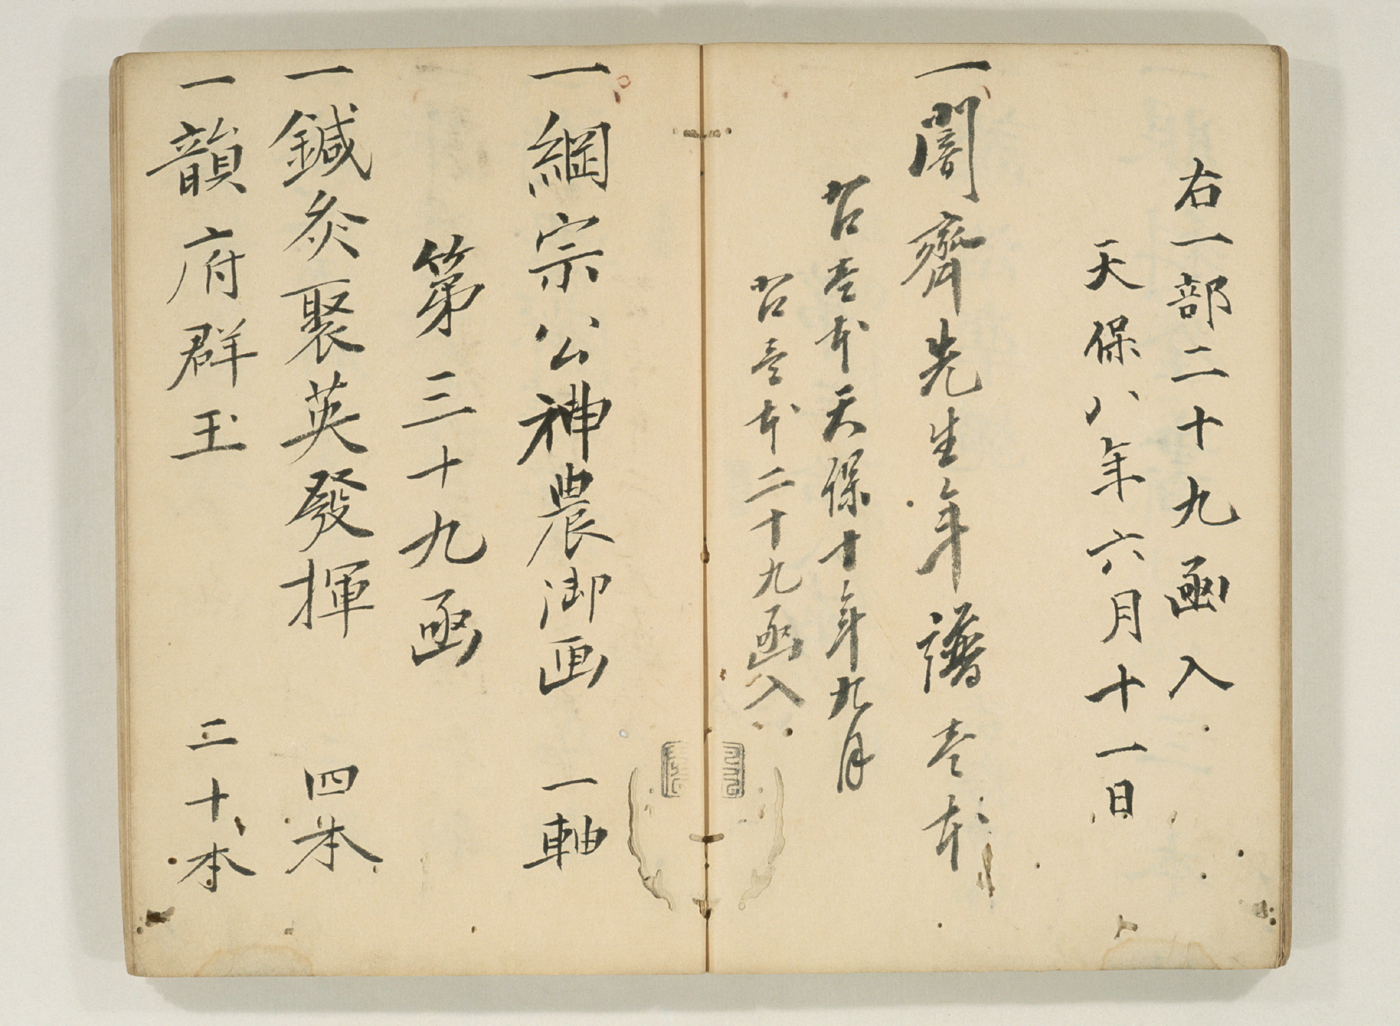 右一部二十九函入
天保八年六月十一日
一闇齊先生年譜壱本
右壱本天保十年九月
右壱本二十九函入
一綱宗公神農御画 一軸
第三十九函
一鍼灸聚英發揮 四本
一韻府群玉 二十本